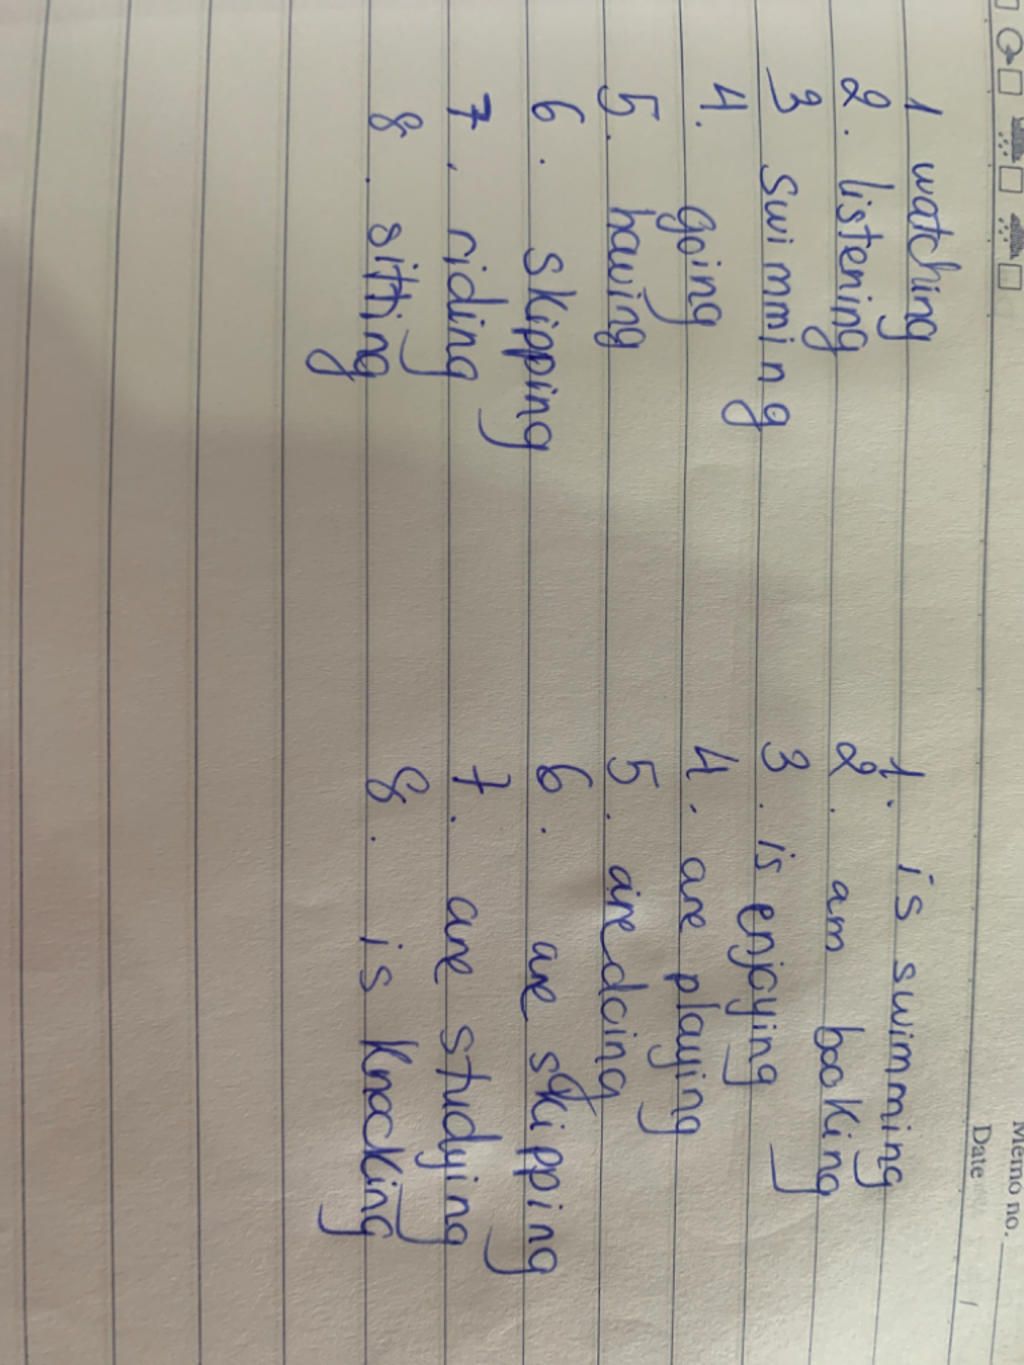 Memo no.
Date /
1 watching
2. listening
3 swimming
4. going
5. having
6. skipping
7. riding
8. sitting
1. is swimming
2. am booking
3. is enjoying
4. are playing
5. are doing
6. are skipping
7. are studying
8. is knocking